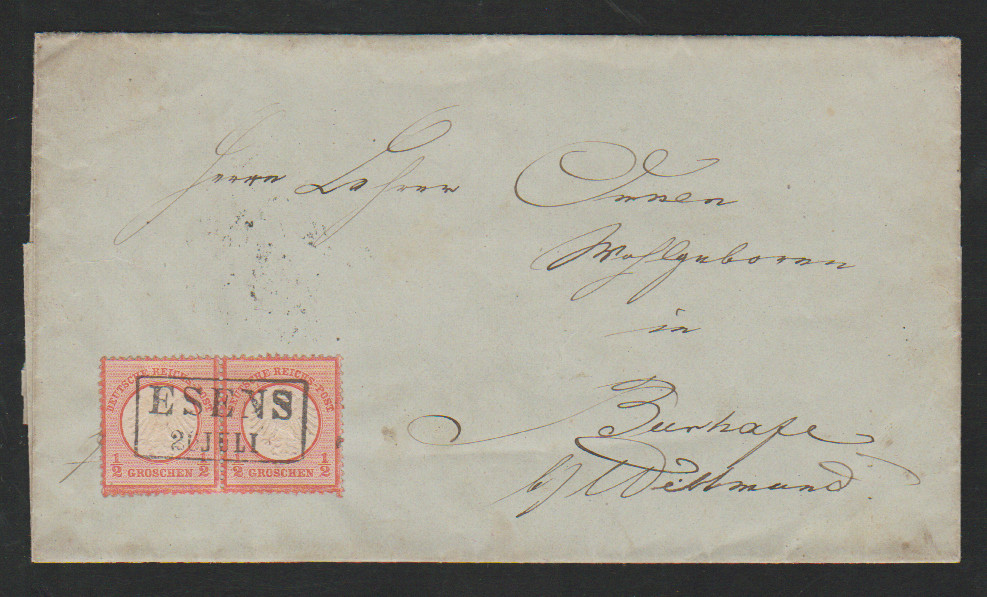 Herrn Lehrer Onken
Wohlgeboren
in
Burhafe
b/ Wittmund
DEUTSCHE REICHS-POST
DEUTSCHE REICHS-POST
ESENS
2 JULI
1/2 GROSCHEN 1/2
1/2 GROSCHEN 1/2